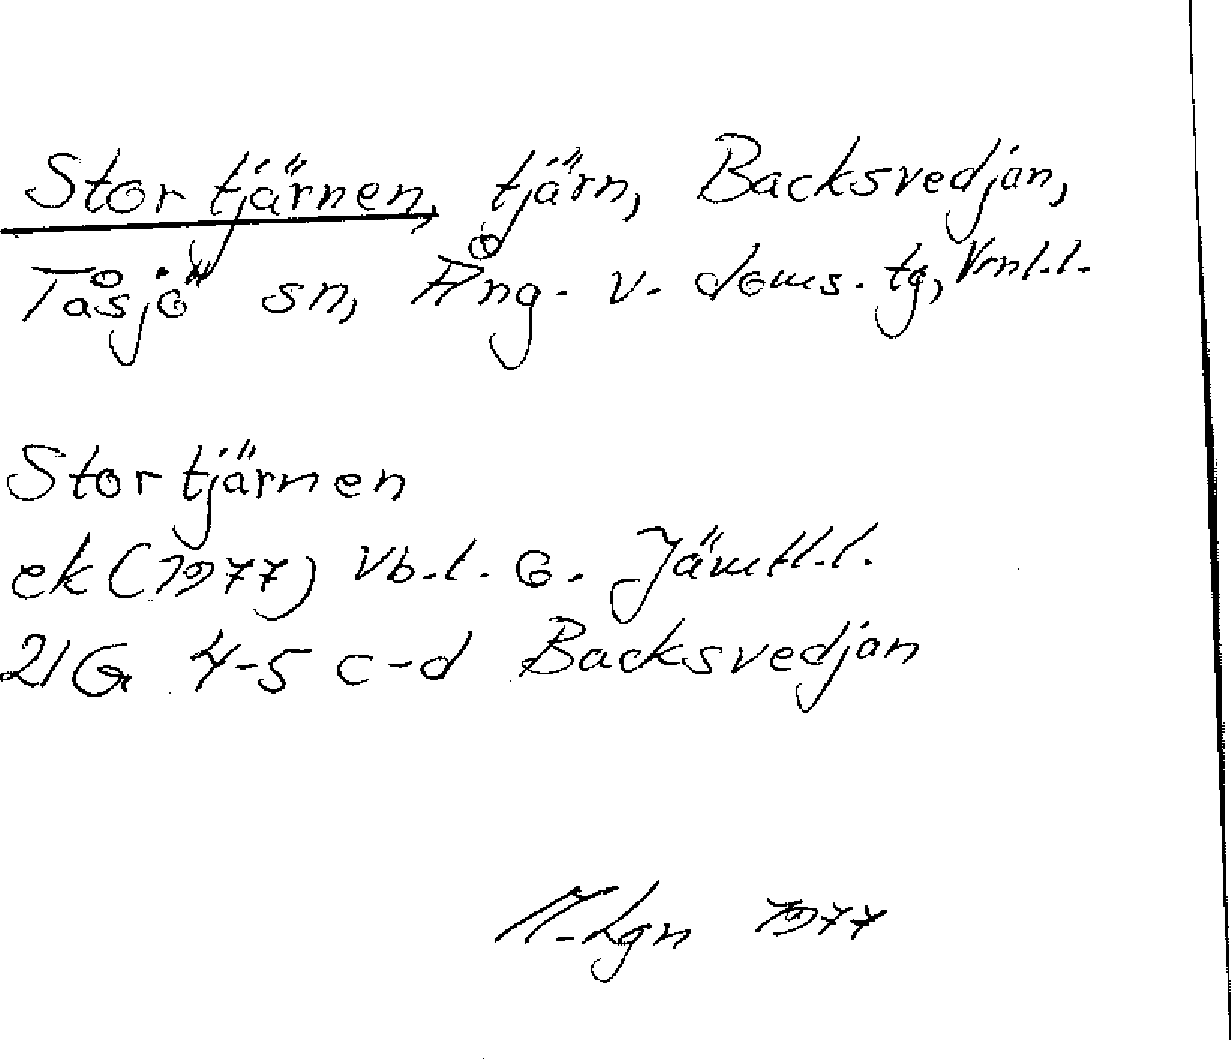 Stortjärnen, tjärn, Backsvedjan,
Tåsjö sn, Ång. v. doms. tg, Vrnl.l.
Stortjärnen
ek (1977) Vb.l. o. Jämtl.l.
21G 4-5 c-d Backsvedjan
M-Lgn 1977